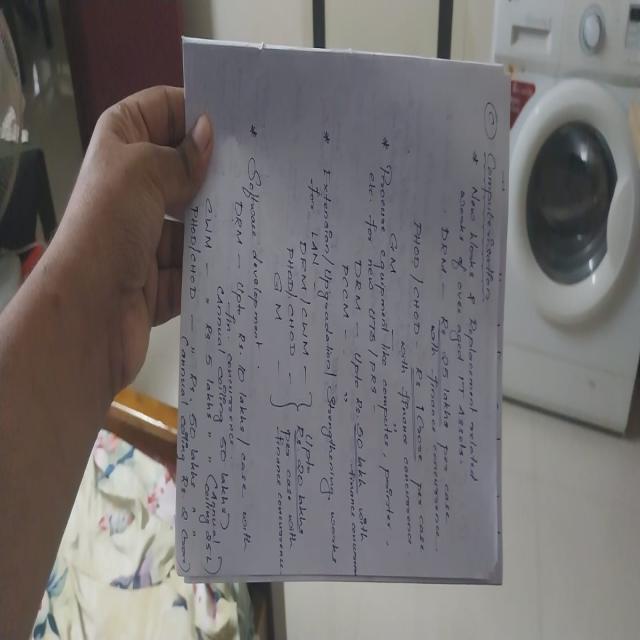 (c) Computerisation
* New Works & Replacement related
works of over aged IT assets.
DRM - Rs. 25 lakhs per case
with finance concurrence.
PHOD/CHOD - Rs. 1 crore per case
GM - with finance concurrence.
* Passenger equipment like computer, printer,
etc. for new UTS/PRS -
DRM - Upto Rs. 20 lakh with
PCCM - " finance
* Extension/Upgradation/Strengthening works
for LAN
DRM/CWM - } Upto
PHOD/CHOD - } Rs. 20 lakhs
GM } per case with
finance concurrence
* Software development.
DRM - Upto Rs. 10 lakhs/case with
fin concurrence
(Annual Ceiling 50 lakhs)
CWM - " Rs 5 lakhs " (Annual Ceiling 25 L)
PHOD/CHOD - " Rs 50 lakhs
(Annual Ceiling Rs 2 crore)